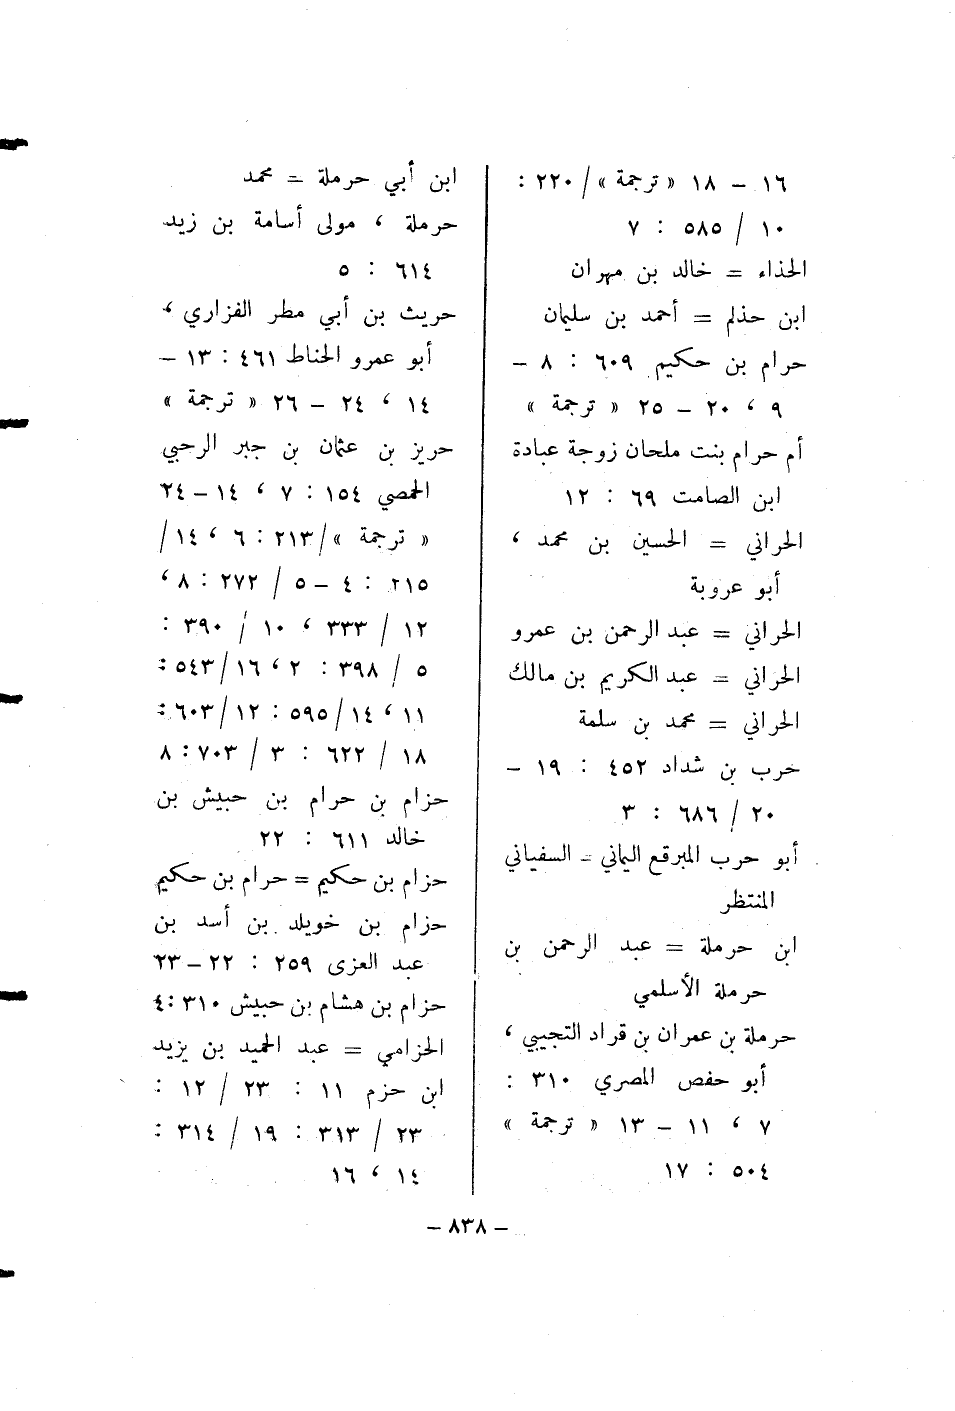 ١٦ – ١٨ « ترجمة »/ ٢٢٠ :
١٠ / ٥٨٥ : ٧
الحذاء = خالد بن مهران
ابن حذلم = أحمد بن سليمان
حرام بن حكيم ٦٠٩ : ٨ –
٩ ، ٢٠ – ٢٥ « ترجمة »
أم حرام بنت ملحان زوجة عبادة
ابن الصامت ٦٩ : ١٢
الحراني = الحسين بن محمد ،
أبو عروبة
الحراني = عبد الرحمن بن عمرو
الحراني = عبد الكريم بن مالك
الحراني = محمد بن سلمة
حرب بن شداد ٤٥٢ : ١٩ –
٢٠ / ٦٨٦ : ٣
أبو حرب المبرقع اليماني = السفياني
المنتظر
ابن حرملة = عبد الرحمن بن
حرملة الأسلمي
حرملة بن عمران بن قراد التجيبي ،
أبو حفص المصري ٣١٠ :
٧ ، ١١ – ١٣ « ترجمة »
٥٠٤ : ١٧
ابن أبي حرملة = محمد
حرملة ، مولى أسامة بن زيد
٦١٤ : ٥
حريث بن أبي مطر الفزاري ،
أبو عمرو الحناط ٤٦١ : ١٣ –
١٤ ، ٢٤ – ٢٦ « ترجمة »
حريز بن عثمان بن جبر الرحبي
الحمصي ١٥٤ : ٧ ، ١٤ – ٢٤
« ترجمة »/ ٢١٣ : ٦ ، ١٤ /
٢١٥ : ٤ – ٥ / ٢٧٢ : ٨ ،
١٢ / ٣٣٣ ، ١٠ / ٣٩٠ :
٥ / ٣٩٨ : ٢ ، ١٦ / ٥٤٣ :
١١ ، ١٤ / ٥٩٥ : ١٢ / ٦٠٣ :
١٨ / ٦٢٢ : ٣ / ٧٠٣ : ٨
حزام بن حرام بن حبيش بن
خالد ٦١١ : ٢٢
حزام بن حكيم = حرام بن حكيم
حزام بن خويلد بن أسد بن
عبد العزى ٢٥٩ : ٢٢ – ٢٣
حزام بن هشام بن حبيش ٣١٠ : ٤
الحزامي = عبد الحميد بن يزيد
ابن حزم ١١ : ٢٣ / ١٢ :
٢٣ / ٣١٣ : ١٩ / ٣١٤ :
١٤ ، ١٦
– ٨٣٨ –